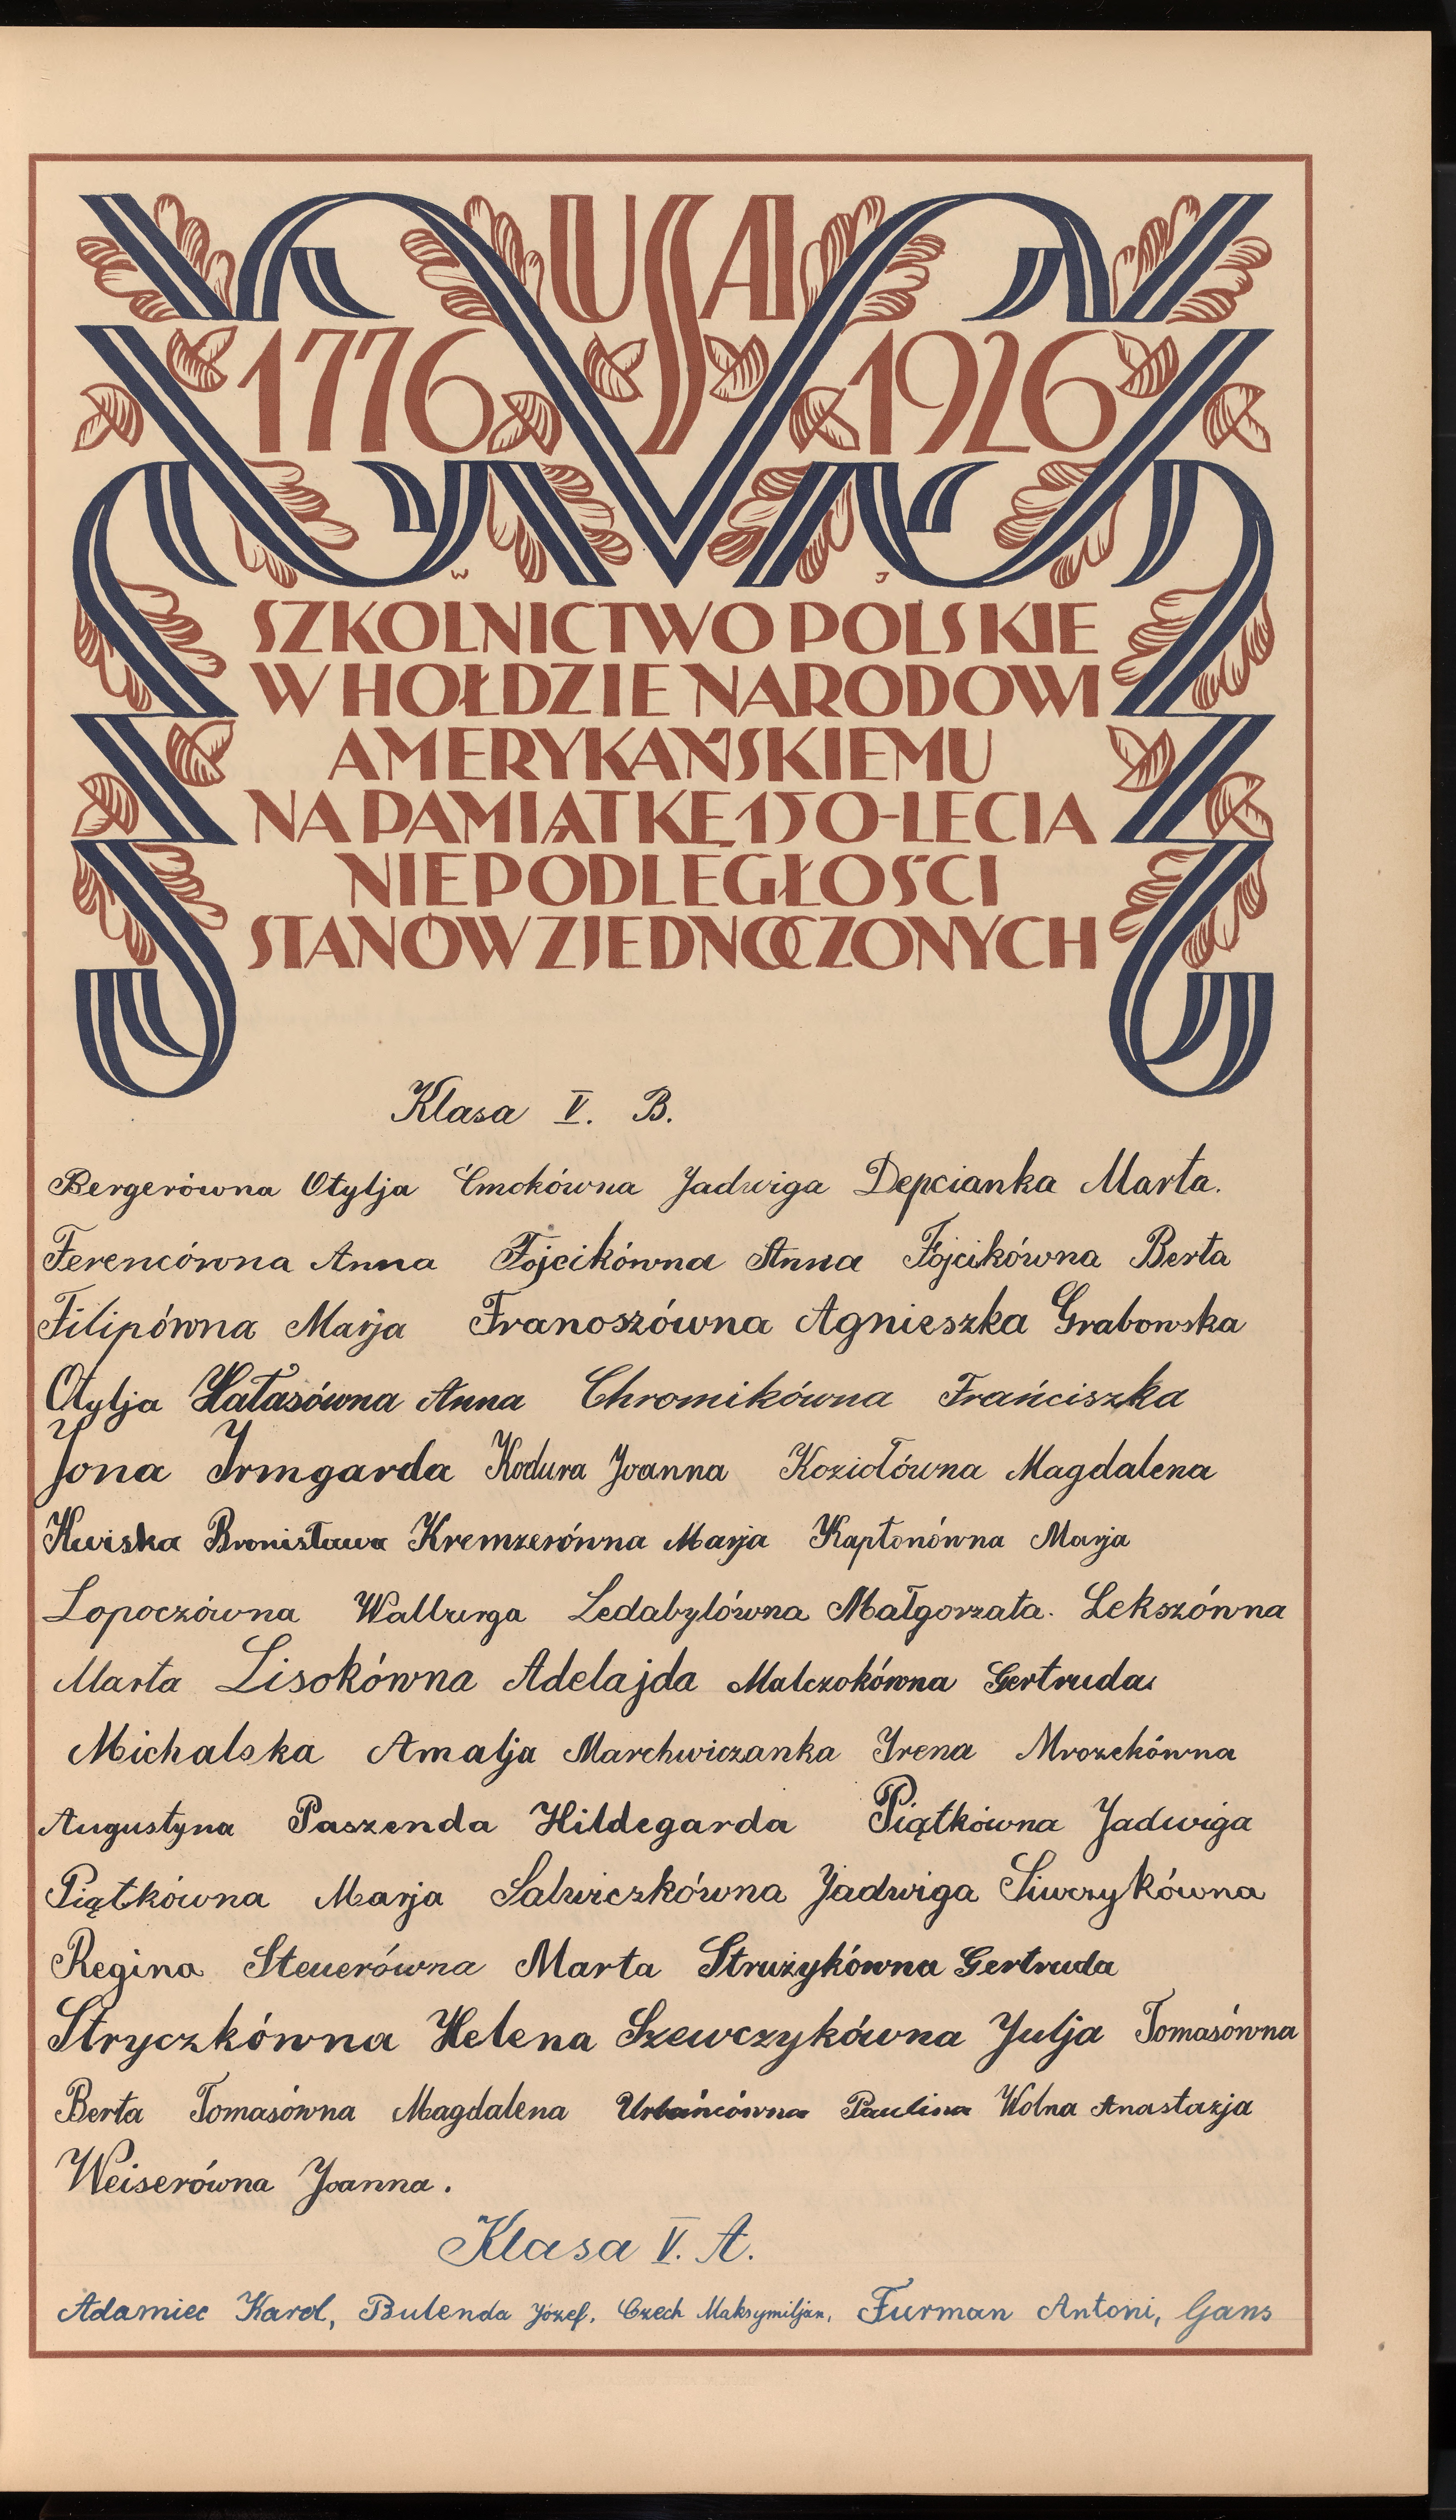 USA
1776 1926
W J
SZKOLNICTWO POLSKIE
W HOŁDZIE NARODOWI
AMERYKAŃSKIEMU
NA PAMIĄTKĘ 150-LECIA
NIEPODLEGŁOŚCI
STANÓW ZJEDNOCZONYCH
Klasa V. B.
Bergerówna Otylja Ćmokówna Jadwiga Depcianka Marta.
Ferencówna Anna Fojcikówna Anna Fojcikówna Berta
Filipówna Marja Franoszówna Agnieszka Grabowska
Otylja Hałasówna Anna Chromikówna Frańciszka
Jona Irmgarda Kodura Joanna Koziołówna Magdalena
Kwiska Bronisława Kremzerówna Marja Kapłonówna Marja
Lopoczówna Walburga Ledabylówna Małgorzata. Lekszówna
Marta Lisokówna Adelajda Malczokówna Gertruda
Michalska Amalja Marchwiczanka Irena Mrozekówna
Augustyna Paszenda Hildegarda Piątkówna Jadwiga
Piątkówna Marja Salwiczkówna Jadwiga Siwczykówna
Regina Steuerówna Marta Strużykówna Gertruda
Stryczkówna Helena Szewczykówna Julja Tomasówna
Berta Tomasówna Magdalena Urbańcówna Paulina Wolna Anastazja
Weiserówna Joanna.
Klasa V. A.
Adamiec Karol, Bulenda Józef, Czech Maksymiljan, Furman Antoni, Gans